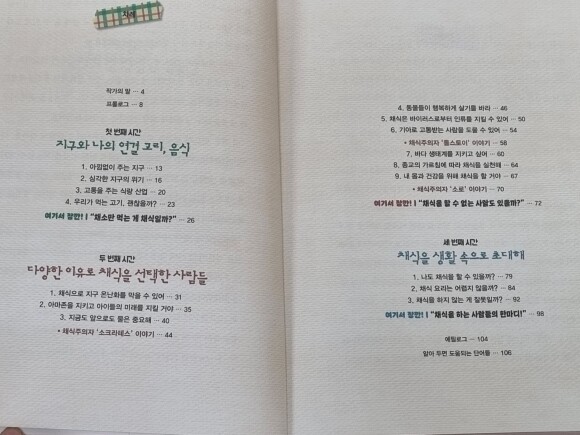 차례
작가의 말 ··· 4
프롤로그 ··· 8
첫 번째 시간
지구와 나의 연결 고리, 음식
1. 아낌없이 주는 지구 ··· 13
2. 심각한 지구의 위기 ··· 16
3. 고통을 주는 식량 산업 ··· 20
4. 우리가 먹는 고기, 괜찮을까? ··· 23
여기서 잠깐! | "채소만 먹는 게 채식일까?" ··· 26
두 번째 시간
다양한 이유로 채식을 선택한 사람들
1. 채식으로 지구 온난화를 막을 수 있어 ··· 31
2. 아마존을 지키고 아이들의 미래를 지킬 거야 ··· 35
3. 지금도 앞으로도 물은 중요해 ··· 40
• 채식주의자 '소크라테스' 이야기 ··· 44
4. 동물들이 행복하게 살기를 바라 ··· 46
5. 채식은 바이러스로부터 인류를 지킬 수 있어 ··· 50
6. 기아로 고통받는 사람을 도울 수 있어 ··· 54
• 채식주의자 '톨스토이' 이야기 ··· 58
7. 바다 생태계를 지키고 싶어 ··· 60
8. 종교의 가르침에 따라 채식을 실천해 ··· 64
9. 내 몸과 건강을 위해 채식을 할 거야 ··· 67
• 채식주의자 '소로' 이야기 ··· 70
여기서 잠깐! | "채식을 할 수 없는 사람도 있을까?" ··· 72
세 번째 시간
채식을 생활 속으로 초대해
1. 나도 채식을 할 수 있을까? ··· 79
2. 채식 요리는 어렵지 않을까? ··· 84
3. 채식을 하지 않는 게 잘못일까? ··· 92
여기서 잠깐! | "채식을 하는 사람들의 한마디!" ··· 98
에필로그 ··· 104
알아 두면 도움되는 단어들 ··· 106